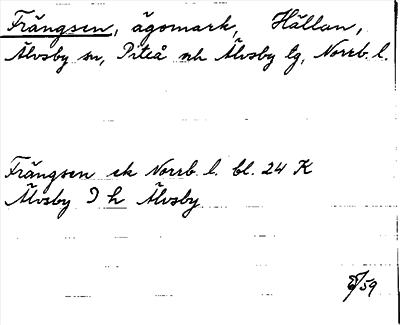 Frängsen, ägomark, Hällan,
Älvsby sn, Piteå nh Älvsby lg, Norrb. l.
Frängsen ek Norrb. l. bl. 24 K
Älvsby I h Älvsby
/59